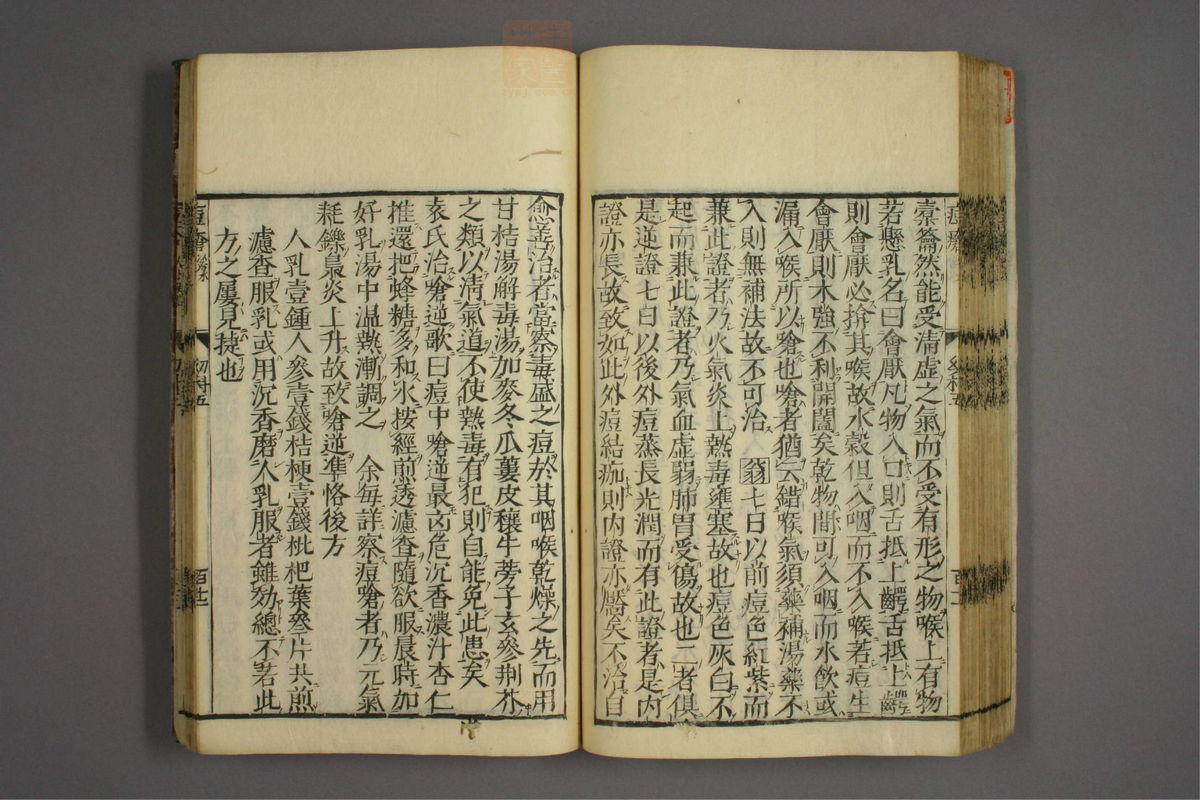 槖籥然能受清虛之氣而不受有形之物喉上有物
若懸乳名曰會厭凡物入口則舌抵上齶舌抵上齶
則會厭必掩其喉故水穀但入咽而不入喉若痘生
會厭則木強不利開闔矣乾物間可入咽而水飲或
漏入喉所以嗆也嗆者猶云錯喉氣須藥補湯藥不
入則無補法故不可治 翁七日以前痘色紅紫而
兼此證者乃火氣炎上熱毒壅塞故也痘色灰白不
起而兼此證者乃氣血虛弱肺胃受傷故也二者俱
是逆證七日以後外痘蒸長光潤而有此證者是內
證亦長故致如此外痘結痂則內證亦愈矣不治自
愈善治者當察毒盛之痘於其咽喉乾燥之先而用
甘桔湯解毒湯加麥冬瓜蔞皮穰牛蒡子玄參荆芥
之類以淸氣道不使熱毒有犯則自能免此患矣
袁氏治嗆逆歌曰痘中嗆逆最凶危沉香濃汁杏仁
推還把蜂糖多和氷按經煎透濾查隨欲服晨時加
好乳湯中温熱漸調之 余每詳察痘嗆者乃元氣
耗鑠梟炎上升故致嗆逆準恪後方
人乳壹鍾人參壹錢桔梗壹錢枇杷葉叄片共煎
濾查服乳或用沉香磨人乳服者雖効總不若此
方之屢見捷也
幼科五